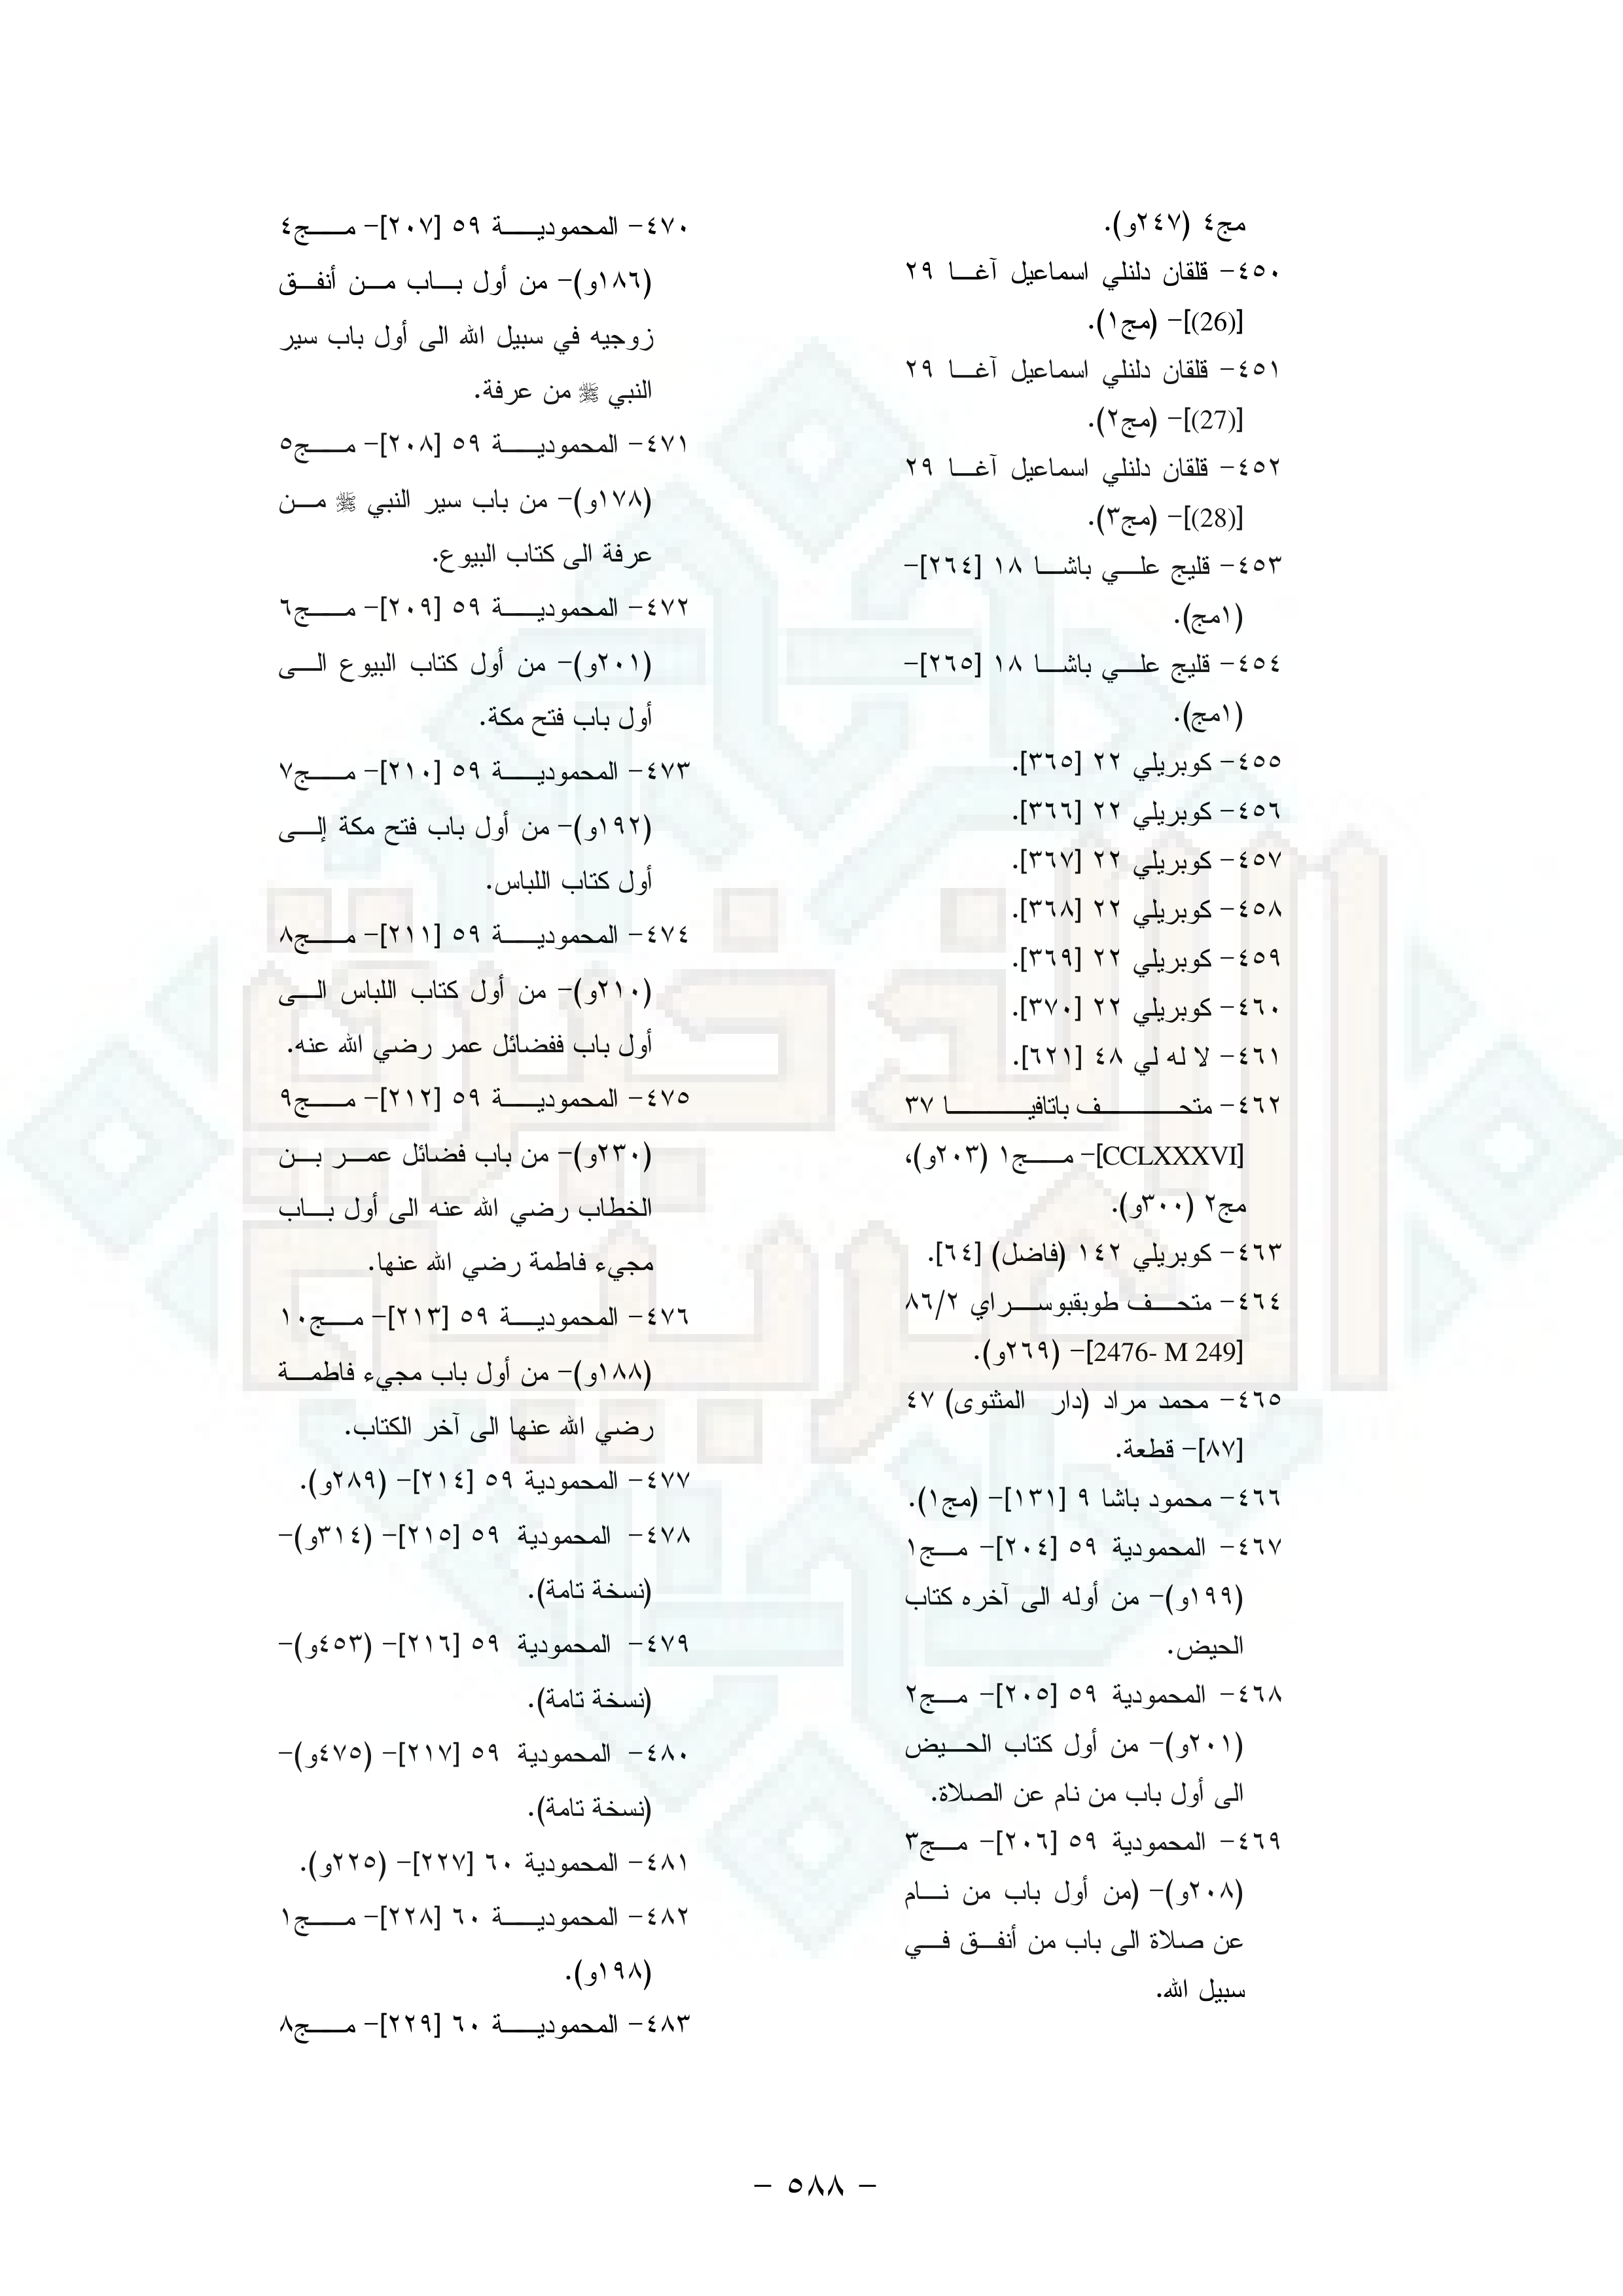 مج٤ (٢٤٧و).
٤٥٠- قلقان دلنلي اسماعيل آغا ٢٩
[(26)]- (مج١).
٤٥١- قلقان دلنلي اسماعيل آغا ٢٩
[(27)]- (مج٢).
٤٥٢- قلقان دلنلي اسماعيل آغا ٢٩
[(28)]- (مج٣).
٤٥٣- قليج علي باشا ١٨ [٢٦٤]-
(١مج).
٤٥٤- قليج علي باشا ١٨ [٢٦٥]-
(١مج).
٤٥٥- كوبريلي ٢٢ [٣٦٥].
٤٥٦- كوبريلي ٢٢ [٣٦٦].
٤٥٧- كوبريلي ٢٢ [٣٦٧].
٤٥٨- كوبريلي ٢٢ [٣٦٨].
٤٥٩- كوبريلي ٢٢ [٣٦٩].
٤٦٠- كوبريلي ٢٢ [٣٧٠].
٤٦١- لا له لي ٤٨ [٦٢١].
٤٦٢- متحف باتافيا ٣٧
[CCLXXXVI]- مج١ (٢٠٣و)،
مج٢ (٣٠٠و).
٤٦٣- كوبريلي ١٤٢ (فاضل) [٦٤].
٤٦٤- متحف طوبقبوسراي ٨٦/٢
[2476- M 249]- (٢٦٩و).
٤٦٥- محمد مراد (دار المثنوى) ٤٧
[٨٧]- قطعة.
٤٦٦- محمود باشا ٩ [١٣١]- (مج١).
٤٦٧- المحمودية ٥٩ [٢٠٤]- مج١
(١٩٩و)- من أوله الى آخره كتاب
الحيض.
٤٦٨- المحمودية ٥٩ [٢٠٥]- مج٢
(٢٠١و)- من أول كتاب الحيض
الى أول باب من نام عن الصلاة.
٤٦٩- المحمودية ٥٩ [٢٠٦]- مج٣
(٢٠٨و)- (من أول باب من نام
عن صلاة الى باب من أنفق في
سبيل الله.
٤٧٠- المحمودية ٥٩ [٢٠٧]- مج٤
(١٨٦و)- من أول باب من أنفق
زوجيه في سبيل الله الى أول باب سير
النبي ﷺ من عرفة.
٤٧١- المحمودية ٥٩ [٢٠٨]- مج٥
(١٧٨و)- من باب سير النبي ﷺ من
عرفة الى كتاب البيوع.
٤٧٢- المحمودية ٥٩ [٢٠٩]- مج٦
(٢٠١و)- من أول كتاب البيوع الى
أول باب فتح مكة.
٤٧٣- المحمودية ٥٩ [٢١٠]- مج٧
(١٩٢و)- من أول باب فتح مكة إلى
أول كتاب اللباس.
٤٧٤- المحمودية ٥٩ [٢١١]- مج٨
(٢١٠و)- من أول كتاب اللباس الى
أول باب ففضائل عمر رضي الله عنه.
٤٧٥- المحمودية ٥٩ [٢١٢]- مج٩
(٢٣٠و)- من باب فضائل عمر بن
الخطاب رضي الله عنه الى أول باب
مجيء فاطمة رضي الله عنها.
٤٧٦- المحمودية ٥٩ [٢١٣]- مج١٠
(١٨٨و)- من أول باب مجيء فاطمة
رضي الله عنها الى آخر الكتاب.
٤٧٧- المحمودية ٥٩ [٢١٤]- (٢٨٩و).
٤٧٨- المحمودية ٥٩ [٢١٥]- (٣١٤و)-
(نسخة تامة).
٤٧٩- المحمودية ٥٩ [٢١٦]- (٤٥٣و)-
(نسخة تامة).
٤٨٠- المحمودية ٥٩ [٢١٧]- (٤٧٥و)-
(نسخة تامة).
٤٨١- المحمودية ٦٠ [٢٢٧]- (٢٢٥و).
٤٨٢- المحمودية ٦٠ [٢٢٨]- مج١
(١٩٨و).
٤٨٣- المحمودية ٦٠ [٢٢٩]- مج٨
- ٥٨٨ -
الذخيرة
العربية